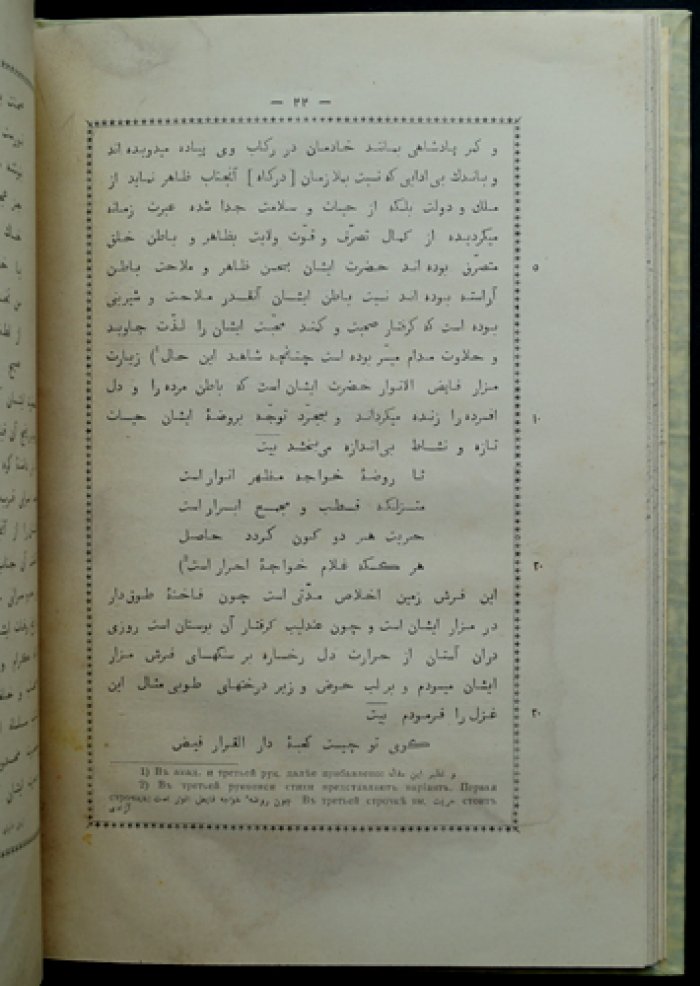 — ٢٢ —
و كمر پادشاهى بمانند خادمان در ركاب وى پياده ميدويده اند
و باندك بى ادابى كه نسبت بملازمان [دركاه] آنجناب ظاهر نمايد از
ملك و دولت بلكه از حيات و سلامت جدا شده عبرت زمانه
ميكرديده از كمال تصرّف و قوّت ولايت بظاهر و باطن خلق
متصرّف بوده اند حضرت ايشان بحسن ظاهر و ملاحت باطن ٥
آراسته بوده اند نسبت باطن ايشان آنقدر ملاحت و شيرينى
بوده است كه كرفتار صحبت و كمند محبّت ايشان را لذّت جاويد
و حلاوت مدام ميسّر بوده است چنانچه شاهد اين حال¹) زيارت
مزار فايض الانوار حضرت ايشان است كه باطن مرده را و دل
افسرده را زنده ميكرداند و بمجرّد توجّه بروضهٔ ايشان حيات ١٠
تازه و نشاط بى‌اندازه مى‌بخشد بيت
تا روضهٔ خواجه مظهر انوار است
منزلكه قطب و مجمع ابرار است
حريت هر دو كون كردد حاصل
هر كسكه غلام خواجهٔ احرار است²) ٢٠
اين فرش زمين اخلاص مدّتى است چون فاختهٔ طوق‌دار
در مزار ايشان است و چون عندليب كرفتار آن بوستان است روزى
دران آستان از حرارت دل رخساره بر سنكهاى فرش مزار
ايشان ميسودم و بر لب حوض و زير درختهاى طوبى مثال اين
غزل را فرمودم بيت ٢٠
كوى تو چيست كعبهٔ دار القرار فيض
1) Въ акад. и третьей рук. далѣе прибавлено و نظير اين مقال
2) Въ третьей рукописи стихи представляютъ варіантъ. Первая
строчка: چون روضهٔ خواجه فايض انور است Въ третьей строчкѣ вм. حريت стоитъ
آزادى